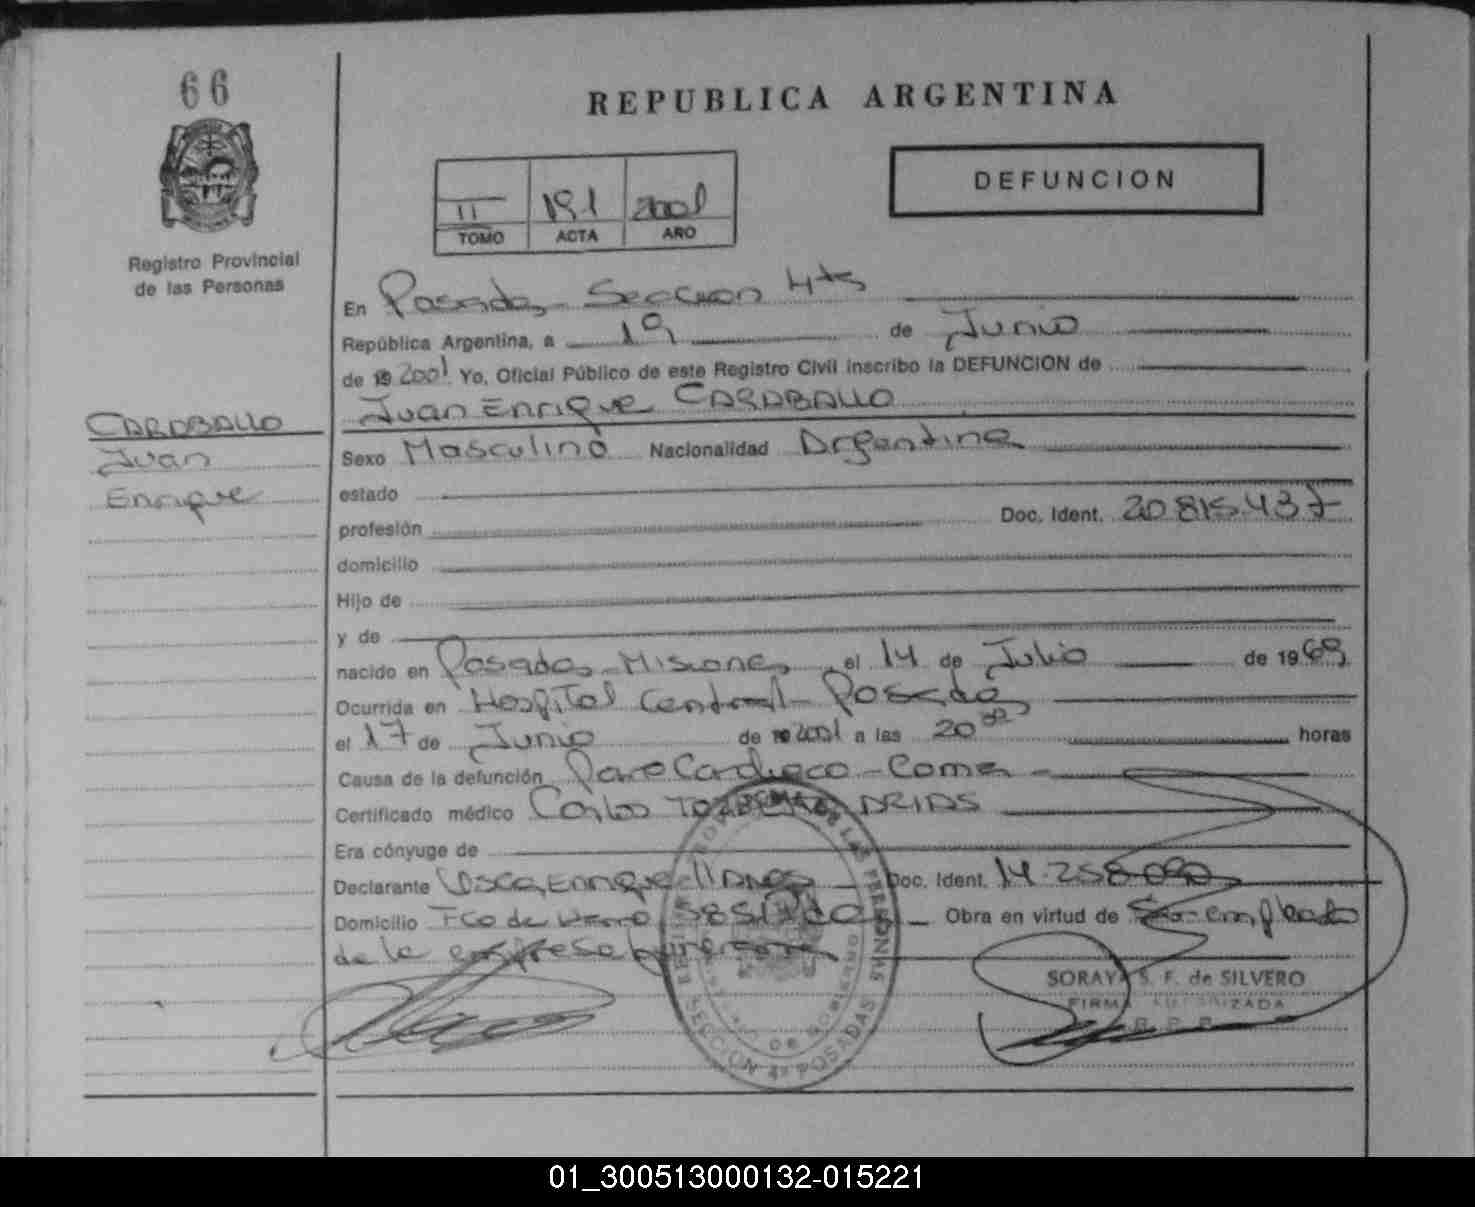 66
REPUBLICA ARGENTINA
DEFUNCION
II 191 2001
TOMO ACTA AÑO
Registro Provincial
de las Personas
En Posadas Seccion 4ta
República Argentina, a 19 de Junio
de 19 2001. Yo, Oficial Público de este Registro Civil inscribo la DEFUNCION de
Juan Enrique CARABALLO
CARABALLO
Juan
Enrique
Sexo Masculino Nacionalidad Argentina
estado
profesión Doc. Ident. 20.815.437
domicilio
Hijo de
y de
nacido en Posadas - Misiones el 14 de Julio de 1969
Ocurrida en Hospital Central - Posadas
el 17 de Junio de 19 2001 a las 20 horas
Causa de la defunción Paro Cardiaco - Coma -
Certificado médico Carlos ARIAS
Era cónyuge de
Declarante Enrique Doc. Ident. 14.258.090
Domicilio Fco de Obra en virtud de Ser empleado
de la empresa
SORAYA S. F. de SILVERO
FIRMA AUTORIZADA
R. P. P.
SECCION 4ª POSADAS
01_300513000132-015221